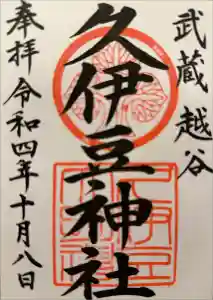 武蔵越谷
久伊豆神社
奉拝令和四年十月八日